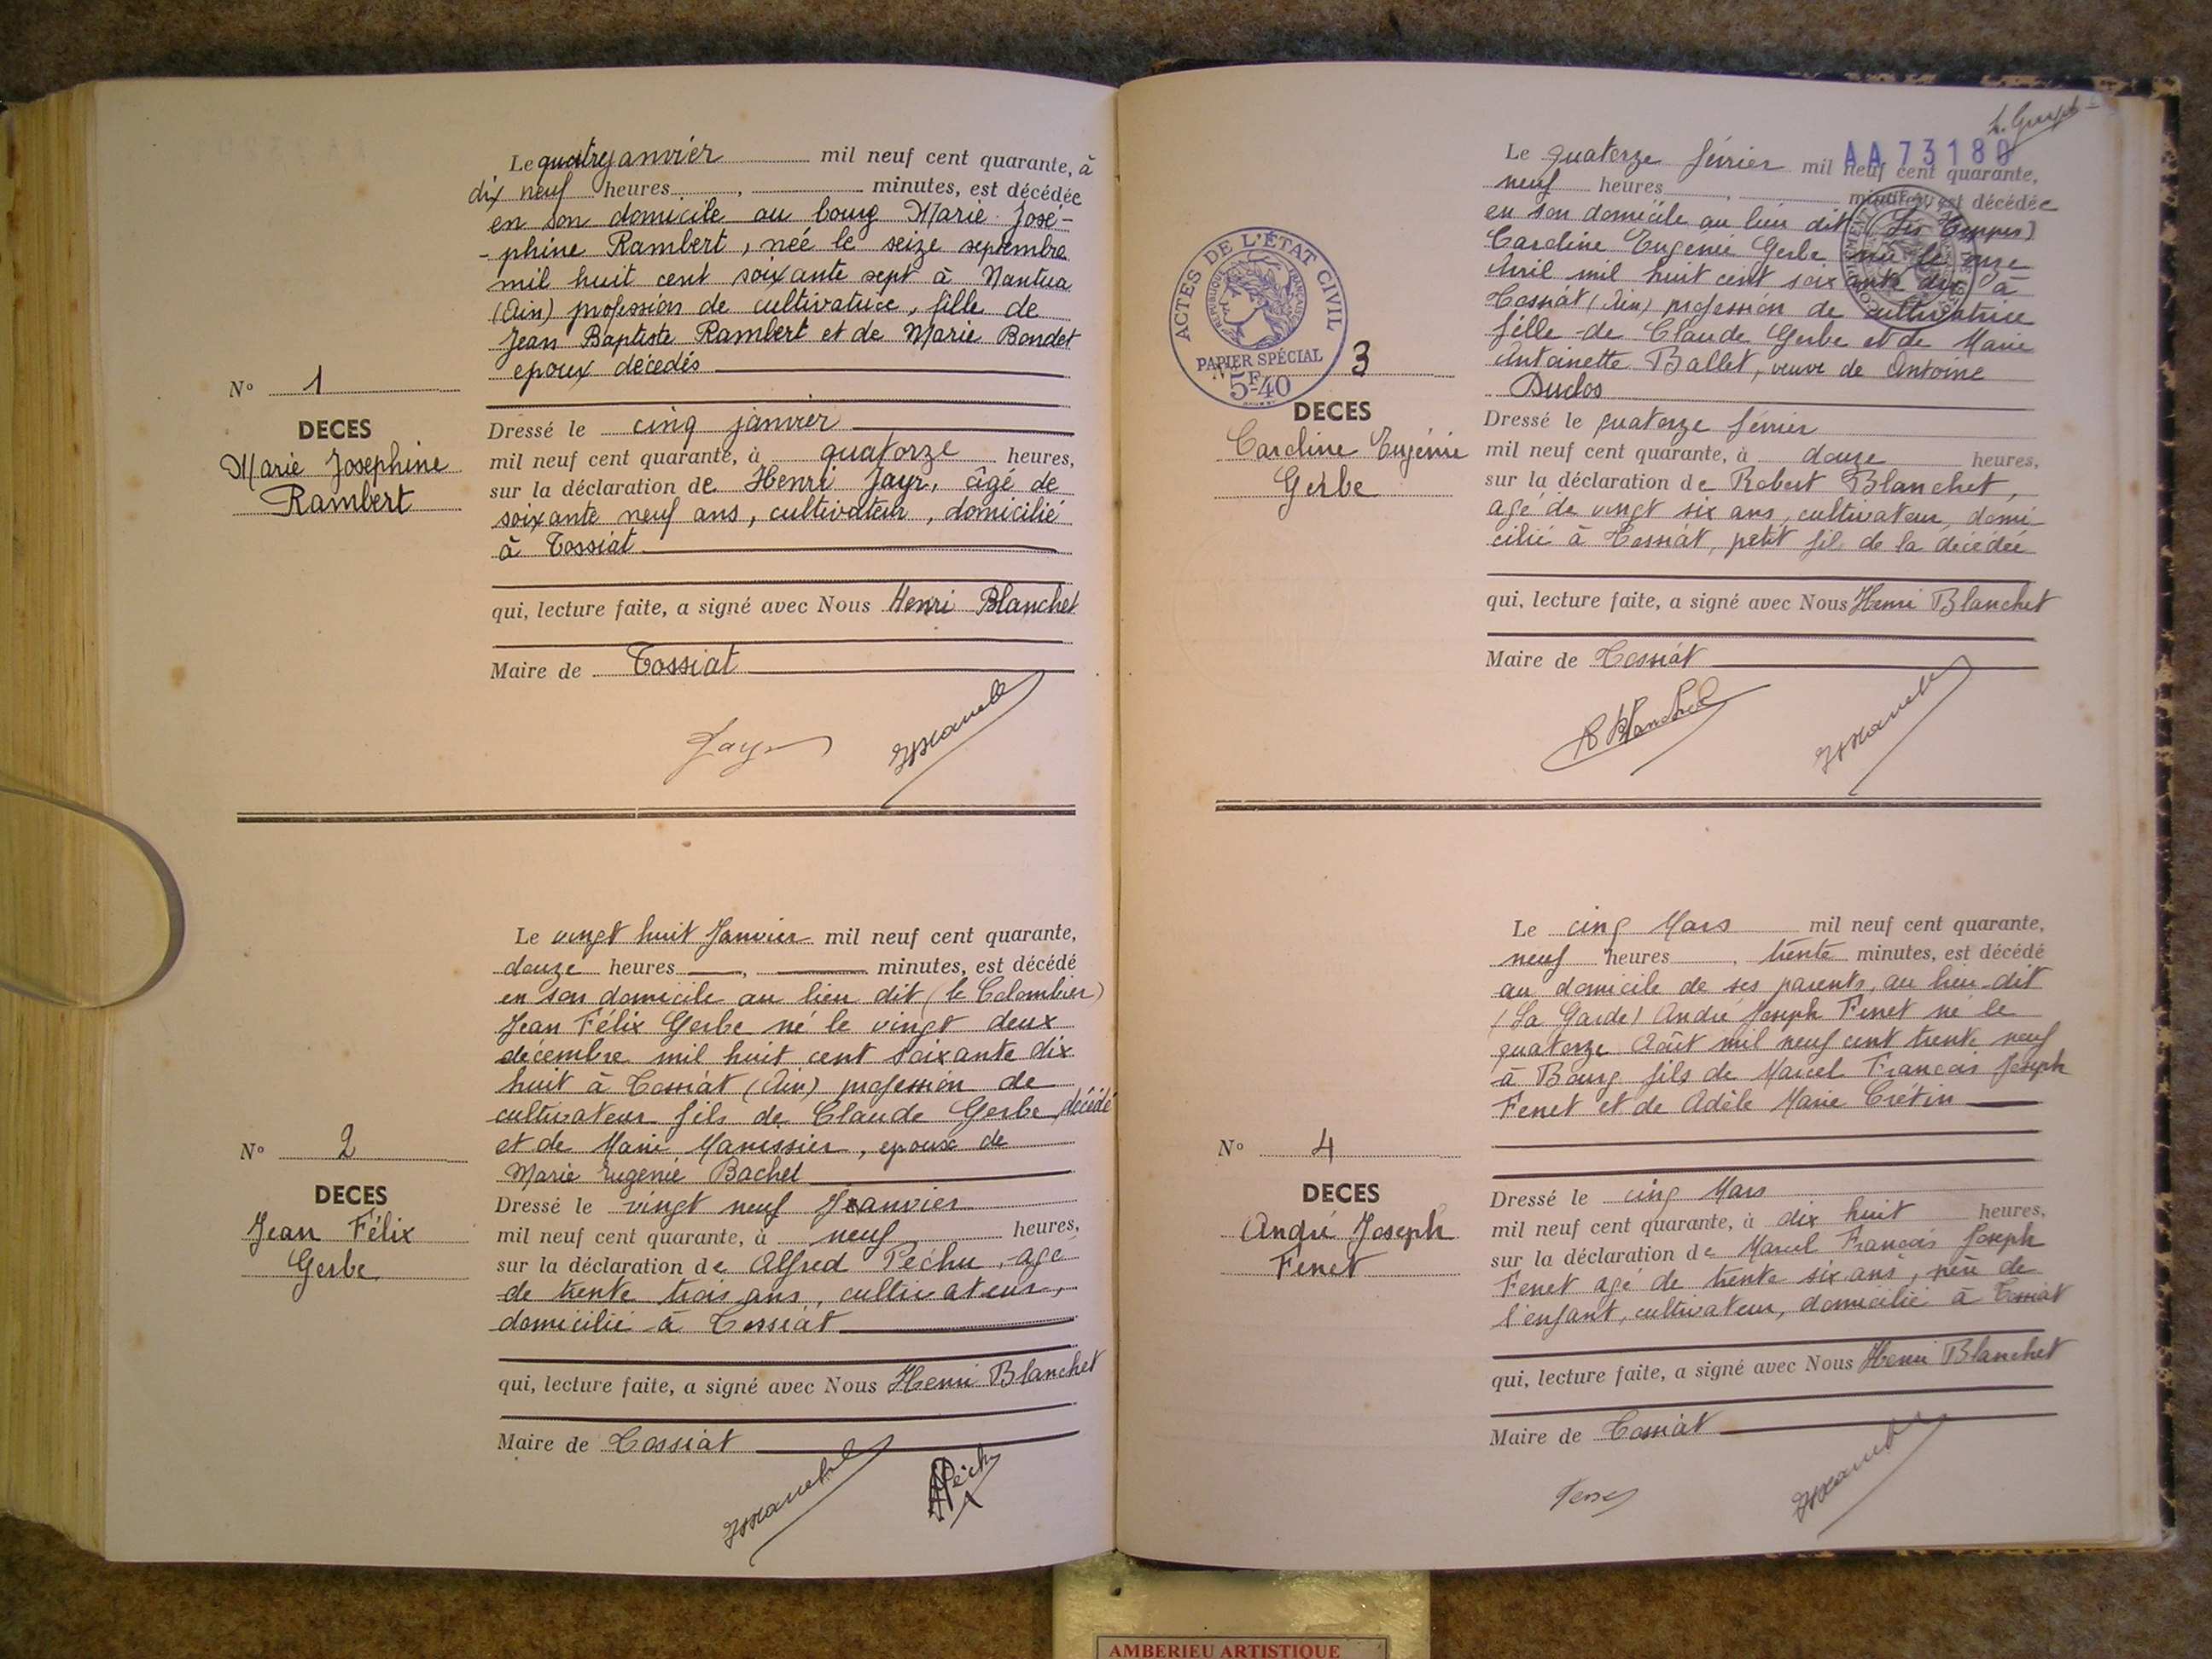 Le quatre janvier mil neuf cent quarante, à
dix neuf heures, minutes, est décédée
en son domicile au bourg Marie José-
-phine Rambert, née le seize septembre
mil huit cent soixante sept à Nantua
(Ain) profession de cultivatrice, fille de
Jean Baptiste Rambert et de Marie Bondet
epoux décédés
N° 1
DECES
Marie Josephine
Rambert
Dressé le cinq janvier
mil neuf cent quarante, à quatorze heures,
sur la déclaration de Henri Jayr, âgé de
soixante neuf ans, cultivateur, domicilié
à Tossiat
qui, lecture faite, a signé avec Nous Henri Blanchet
Maire de Tossiat
Jayr
Le vingt huit Janvier mil neuf cent quarante,
douze heures, minutes, est décédé
en son domicile au lieu dit (le Colombier)
Jean Félix Gerbe né le vingt deux
décembre mil huit cent soixante dix
huit à Tossiat (Ain) profession de
cultivateur fils de Claude Gerbe décédé
et de Marie Manissier, epoux de
Marie Eugenie Bachet
N° 2
DECES
Jean Félix
Gerbe
Dressé le vingt neuf Janvier
mil neuf cent quarante, à neuf heures,
sur la déclaration de Alfred Péchu, agé
de trente trois ans, cultivateur,
domicilié à Tossiat
qui, lecture faite, a signé avec Nous Henri Blanchet
Maire de Tossiat
AA 73180
Le quatorze février mil neuf cent quarante,
neuf heures, minutes, est décédée
en son domicile au lieu dit (Les Teppes)
Caroline Eugénie Gerbe née le onze
Avril mil huit cent soixante dix à
Tossiat (Ain) profession de cultivatrice
fille de Claude Gerbe et de Marie
Antoinette Ballet, veuve de Antoine
Duclos
ACTES DE L'ÉTAT CIVIL
RÉPUBLIQUE FRANÇAISE
PAPIER SPÉCIAL
5F40
N° 3
DECES
Caroline Eugénie
Gerbe
Dressé le quatorze février
mil neuf cent quarante, à douze heures,
sur la déclaration de Robert Blanchet,
agé de vingt six ans, cultivateur, domi
cilié à Tossiat, petit fils de la décédée
qui, lecture faite, a signé avec Nous Henri Blanchet
Maire de Tossiat
R Blanchet
Le cinq Mars mil neuf cent quarante,
neuf heures, trente minutes, est décédé
au domicile de ses parents, au lieu-dit
(La Garde) André Joseph Fenet né le
quatorze Août mil neuf cent trente neuf
à Bourg fils de Marcel François Joseph
Fenet et de Adèle Marie Crétin
N° 4
DECES
André Joseph
Fenet
Dressé le cinq Mars
mil neuf cent quarante, à dix huit heures,
sur la déclaration de Marcel François Joseph
Fenet agé de trente six ans, père de
l'enfant, cultivateur, domicilié à Tossiat
qui, lecture faite, a signé avec Nous Henri Blanchet
Maire de Tossiat
AMBERIEU ARTISTIQUE